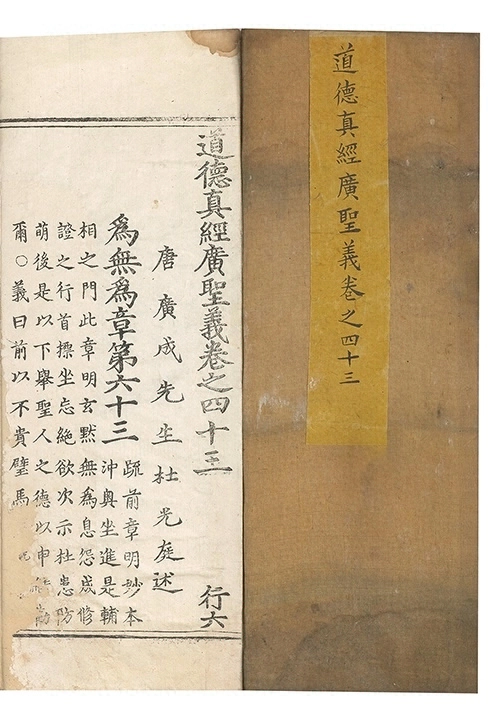 道德真經廣聖義卷之四十三
道德真經廣聖義卷之四十三
行六
唐廣成先生杜光庭述
爲無爲章第六十三
疏前章明妙本
沖奧坐進是輔
相之門此章明玄默無爲息怨成修
證之行首標坐忘絕欲次示杜患防
萌後是以下舉聖人之德以申
爾○義曰前以不貴璧馬